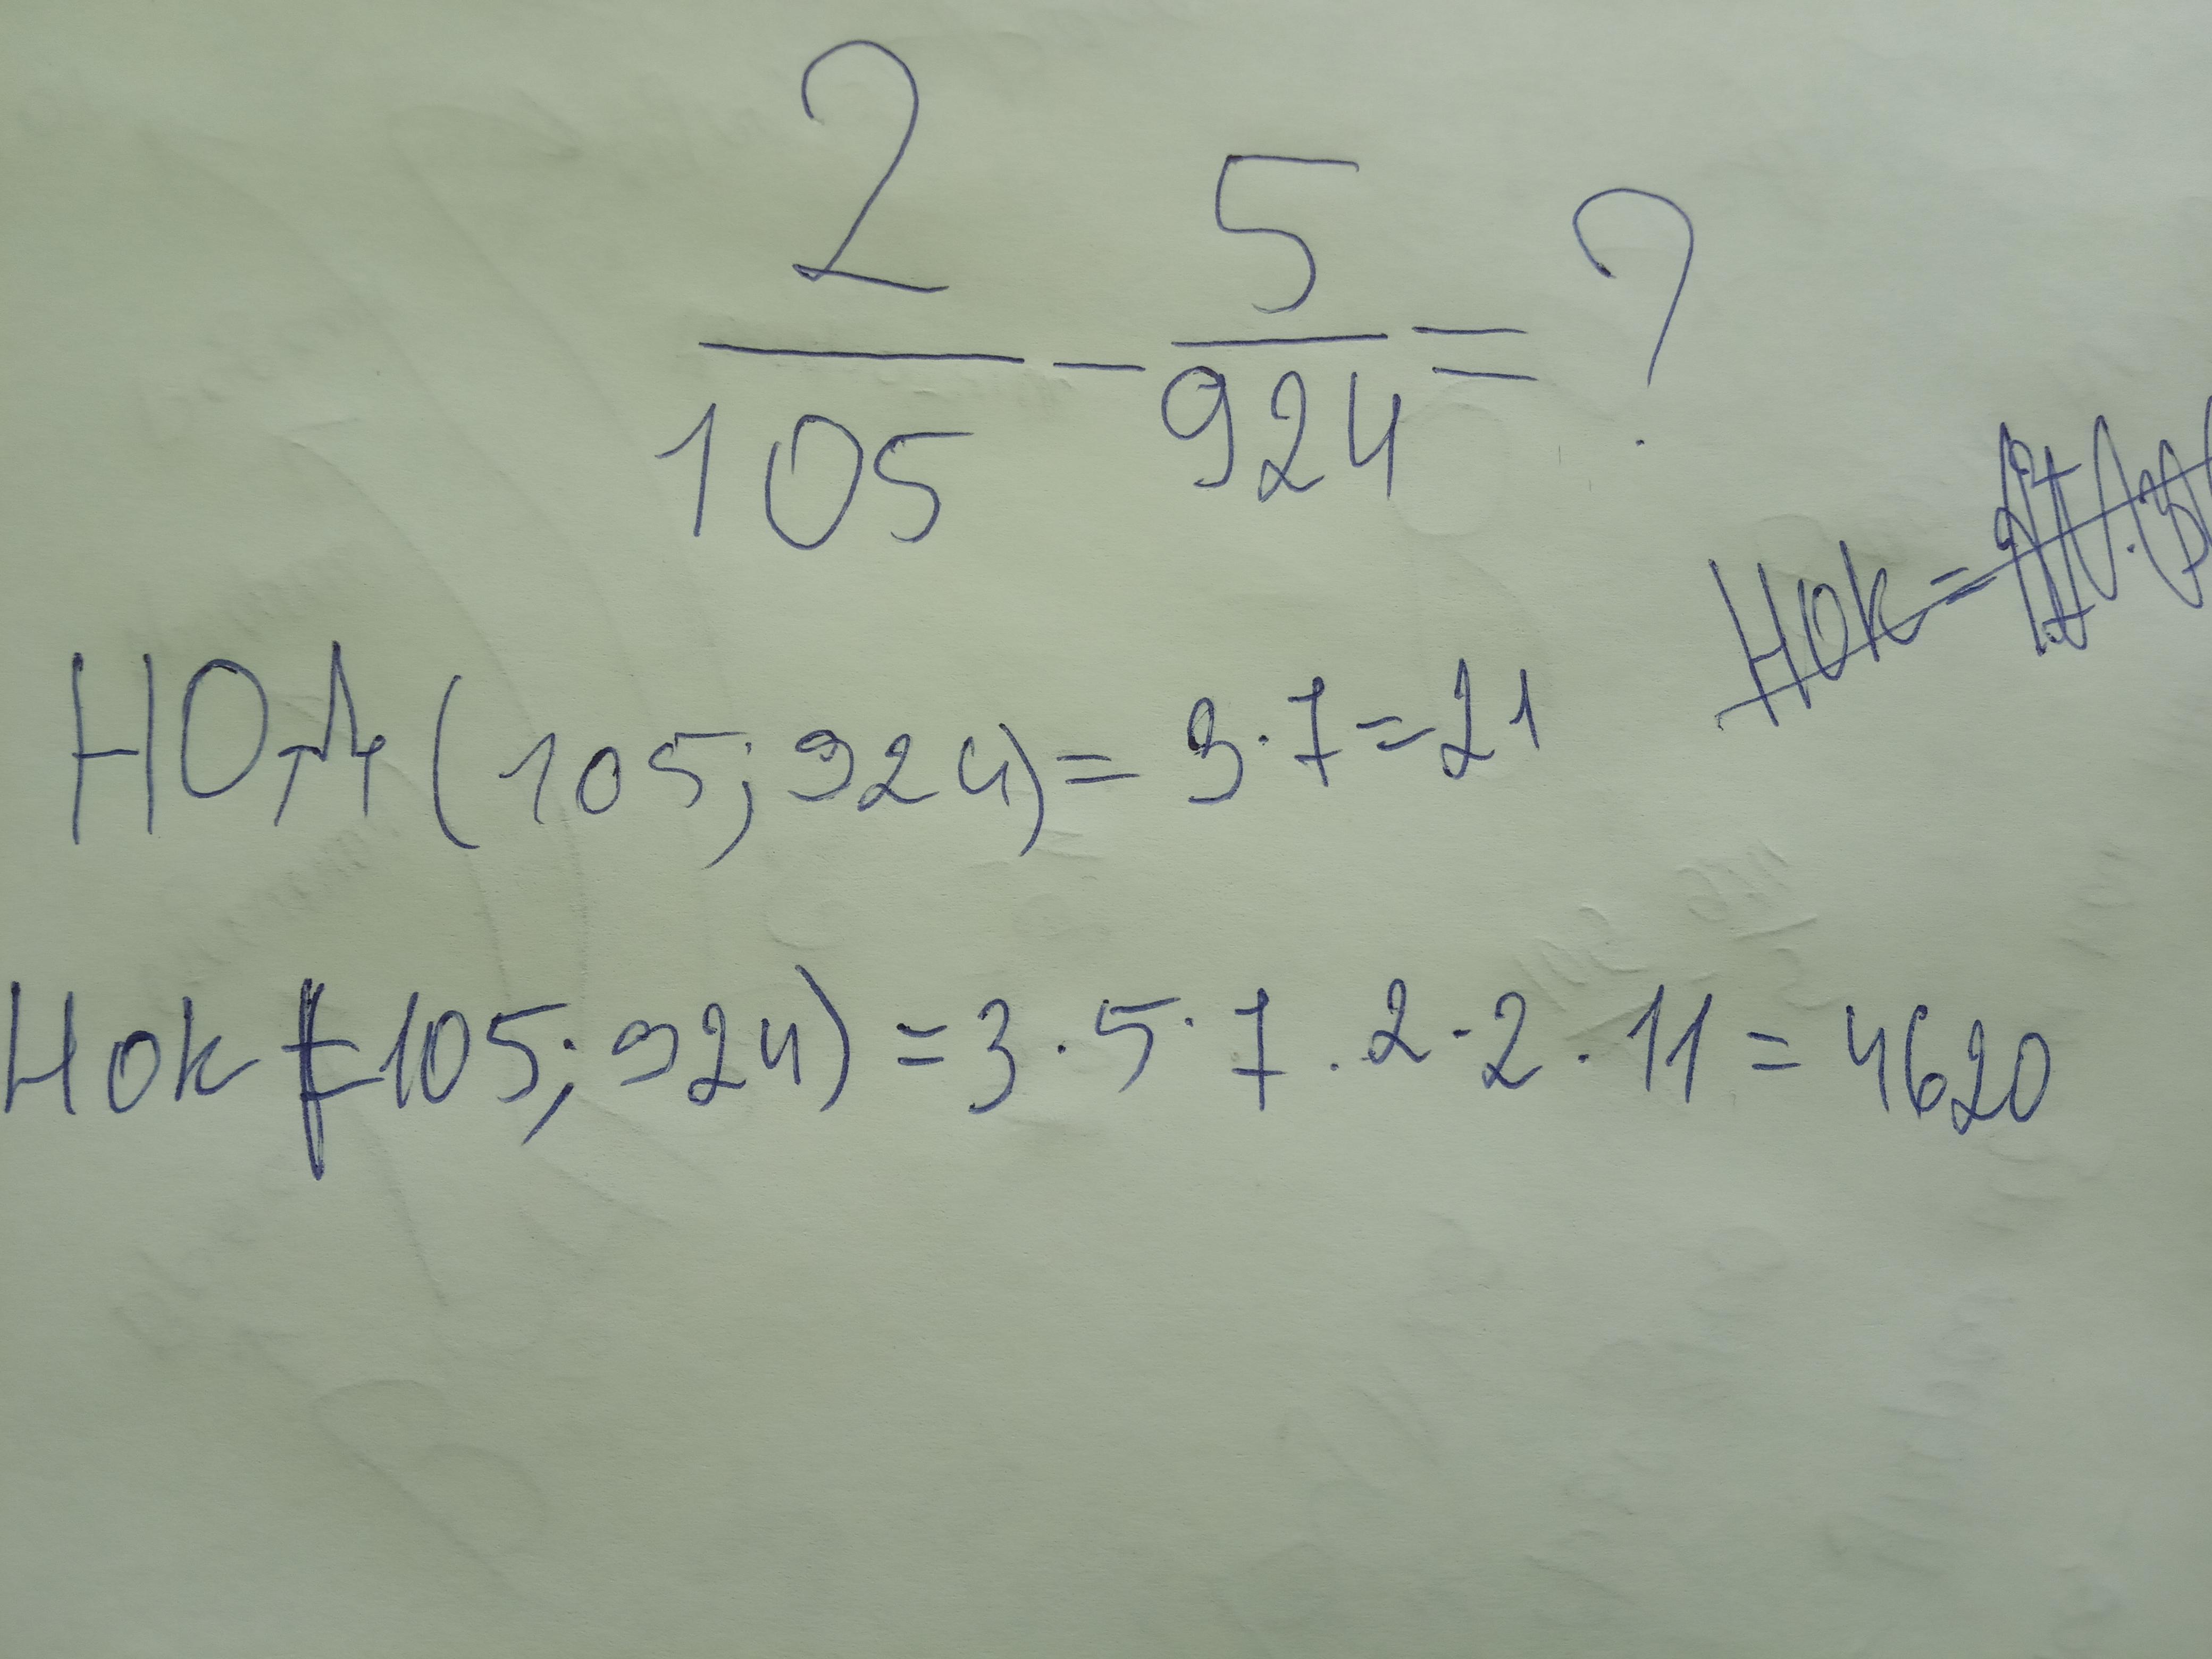 2/105 - 5/924 = ?
НОД (105; 924) = 3·7 = 21
НОК =
НОК (105; 924) = 3·5·7·2·2·11 = 4620